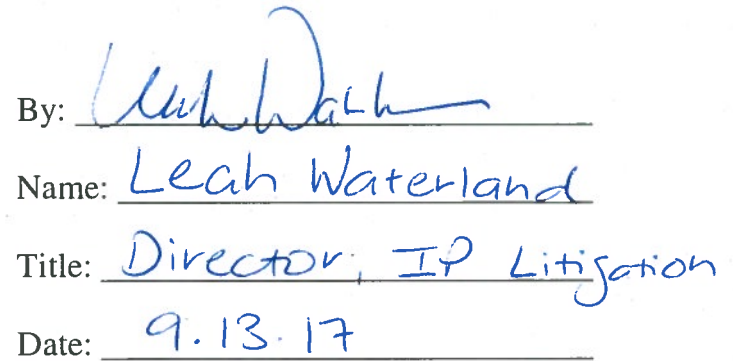 By:
Name: Leah Waterland
Title: Director, IP Litigation
Date: 9.13.17